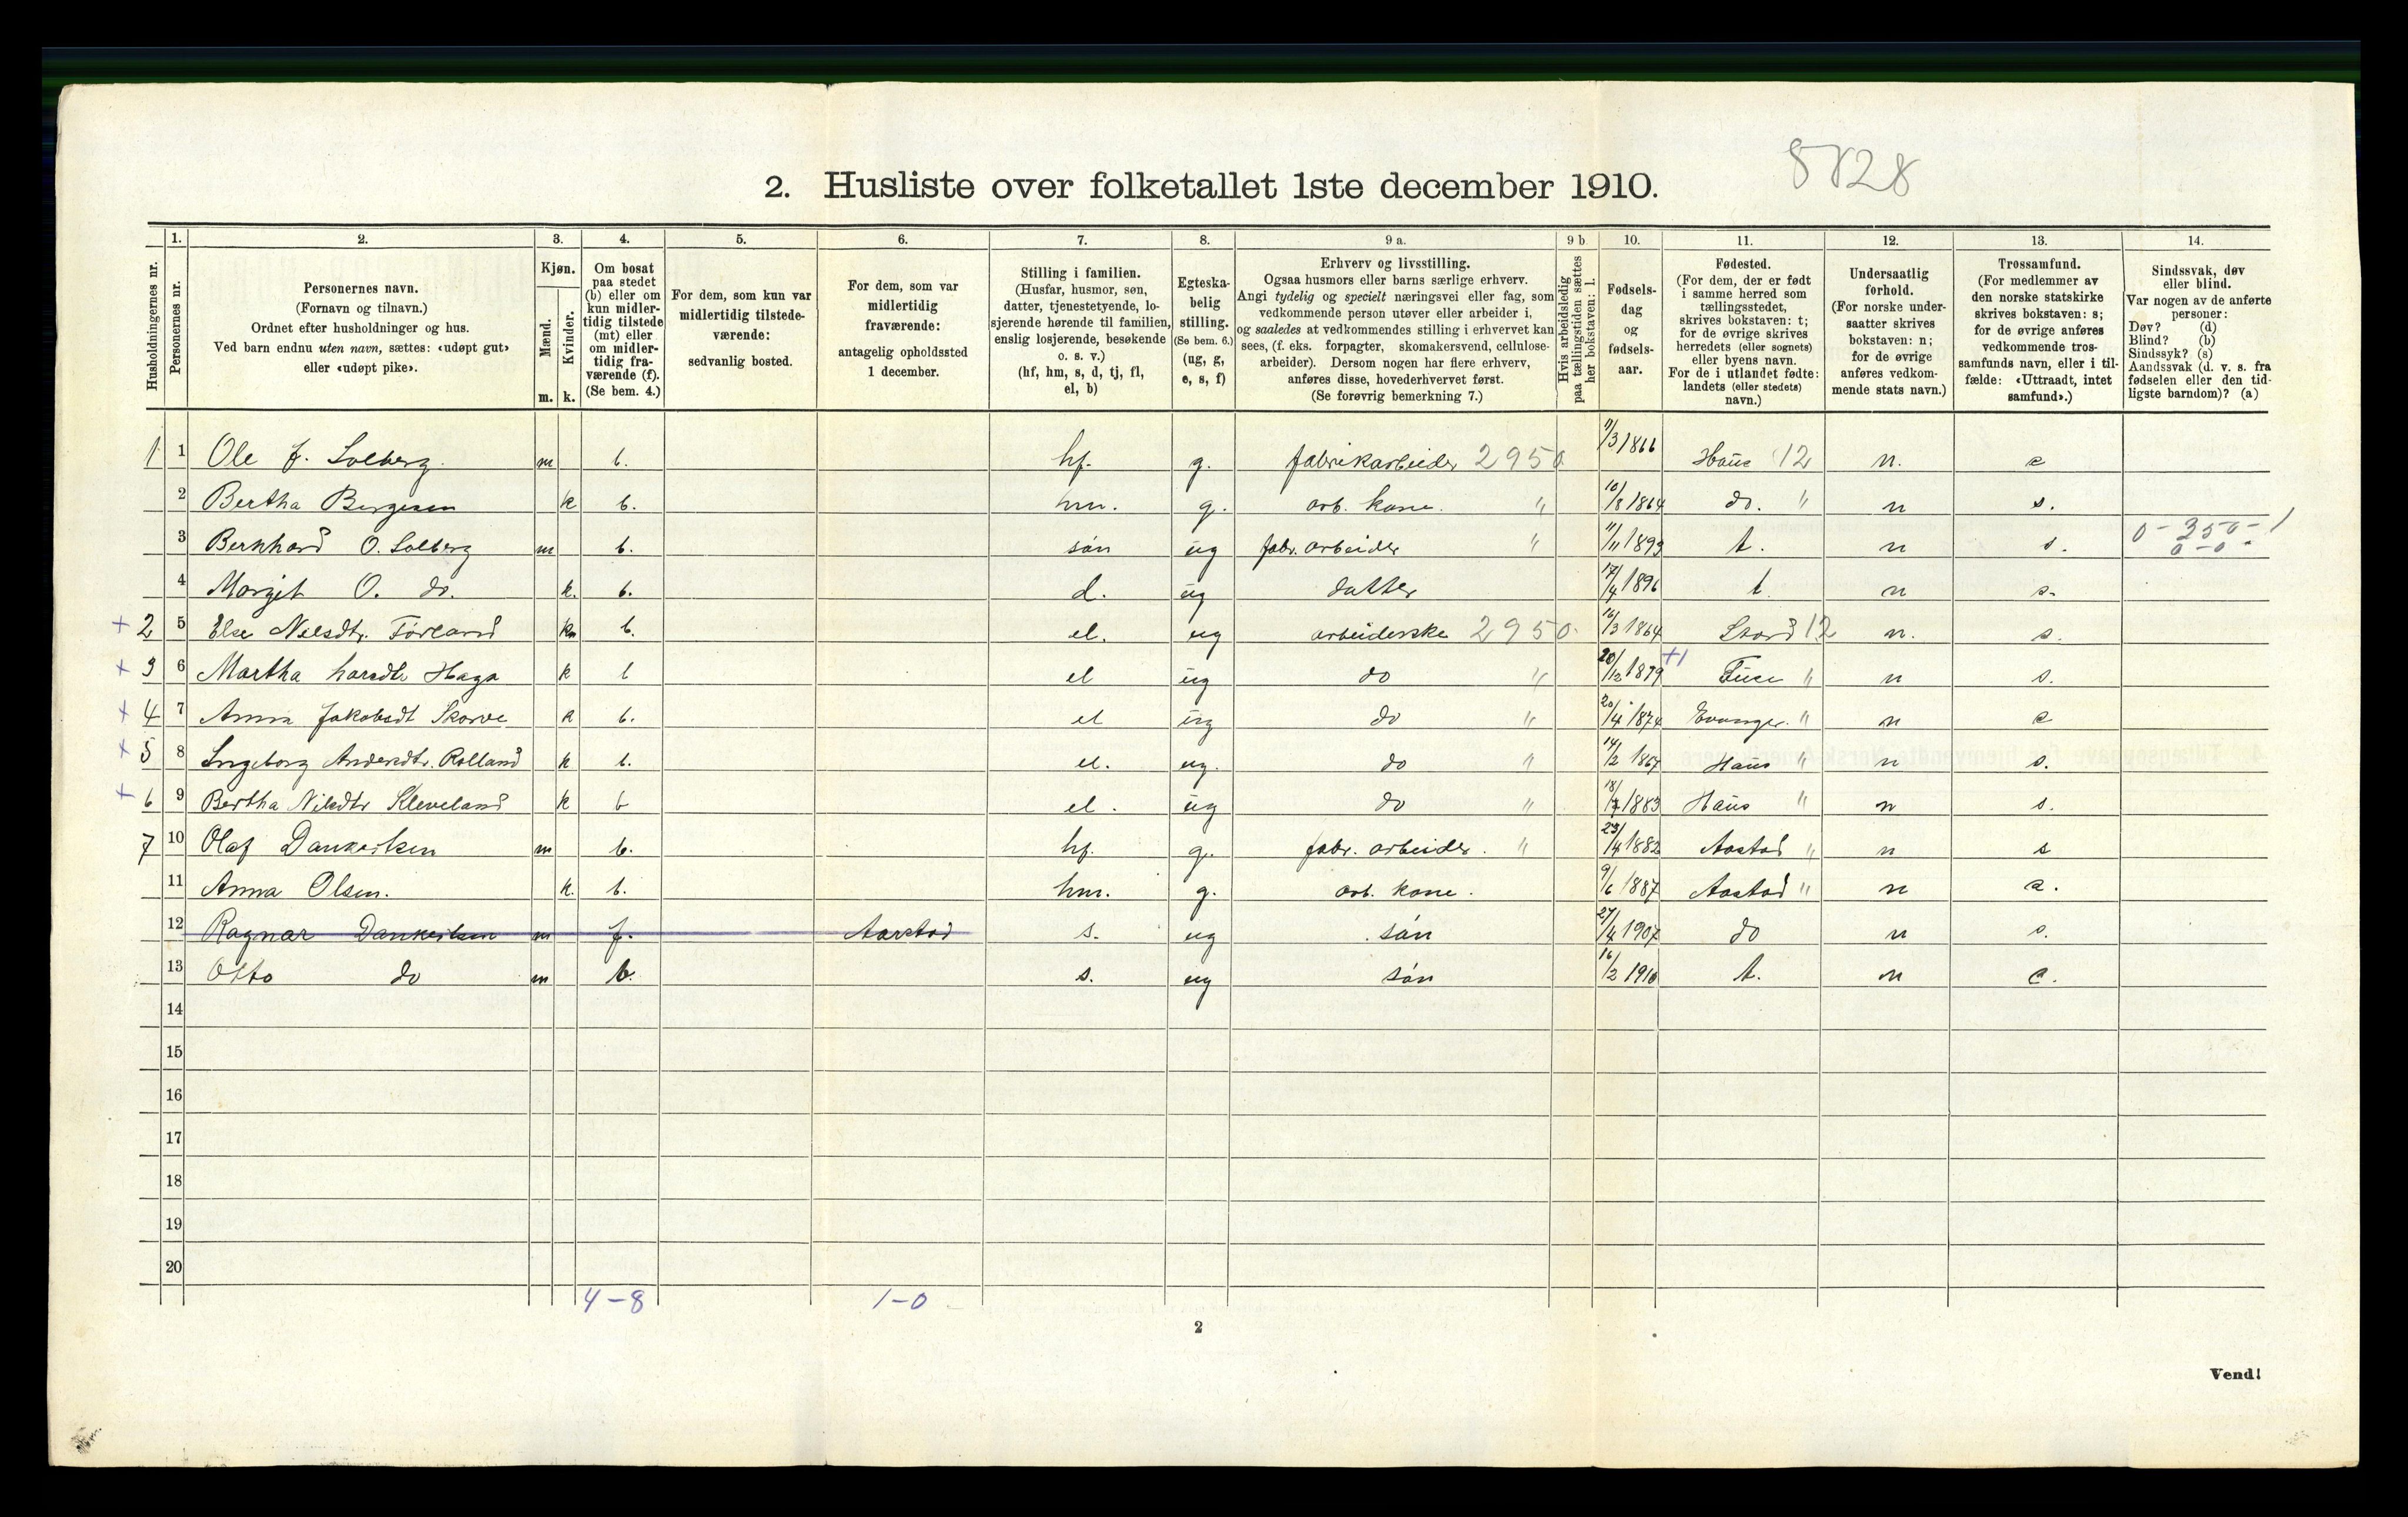 5828
2. Husliste over folketallet 1ste december 1910.
Husholdningernes nr.
1. Personernes nr.
2. Personernes navn.
(Fornavn og tilnavn.)
Ordnet efter husholdninger og hus.
Ved barn endnu uten navn, sættes: «udøpt gut»
eller «udøpt pike».
3. Kjøn.
Mænd. m.
Kvinder. k.
4. Om bosat
paa stedet
(b) eller om
kun midler-
tidig tilstede
(mt) eller
om midler-
tidig fra-
værende (f).
(Se bem. 4.)
5. For dem, som kun var
midlertidig tilstede-
værende:
sedvanlig bosted.
6. For dem, som var
midlertidig
fraværende:
antagelig opholdssted
1 december.
7. Stilling i familien.
(Husfar, husmor, søn,
datter, tjenestetyende, lo-
sjerende hørende til familien,
enslig losjerende, besøkende
o. s. v.)
(hf, hm, s, d, tj, fl,
el, b)
8. Egteska-
belig
stilling.
(Se bem. 6.)
(ug, g,
e, s, f)
9 a. Erhverv og livsstilling.
Ogsaa husmors eller barns særlige erhverv.
Angi tydelig og specielt næringsvei eller fag, som
vedkommende person utøver eller arbeider i,
og saaledes at vedkommendes stilling i erhvervet kan
sees, (f. eks. forpagter, skomakersvend, cellulose-
arbeider). Dersom nogen har flere erhverv,
anføres disse, hovederhvervet først.
(Se forøvrig bemerkning 7.)
9 b Hvis arbeidsledig
paa tællingstiden sættes
her bokstaven: l.
10. Fødsels-
dag
og
fødsels-
aar.
11. Fødested.
(For dem, der er født
i samme herred som
tællingsstedet,
skrives bokstaven: t;
for de øvrige skrives
herredets (eller sognets)
eller byens navn.
For de i utlandet fødte:
landets (eller stedets)
navn.)
12. Undersaatlig
forhold.
(For norske under-
saatter skrives
bokstaven: n;
for de øvrige
anføres vedkom-
mende stats navn.)
13. Trossamfund.
(For medlemmer av
den norske statskirke
skrives bokstaven: s;
for de øvrige anføres
vedkommende tros-
samfunds navn, eller i til-
fælde: «Uttraadt, intet
samfund».)
14. Sindssvak, døv
eller blind.
Var nogen av de anførte
personer:
Døv? (d)
Blind? (b)
Sindssyk? (s)
Aandssvak (d. v. s. fra
fødselen eller den tid-
ligste barndom)? (a)
1 1 Ole J. Solberg m b. hf. g. fabrikarbeider 2950 11/3 1866 Haus 12 n. s
2 Bertha Bergesen k b. hm. g. arb. kone. " 10/8 1864 do. " n s.
3 Bernhard O. Solberg m b. søn ug fabr. arbeider " 11/11 1893 t. n s. 0-350-1
0-0
4 Margit O. do. k. b. d. ug datter 17/4 1896 t. n s.
+ 2 5 Else Nelsdtr. Förland k b. el. ug arbeiderske 2950 16/3 1864 Stord 12 n. s.
+ 3 6 Martha Larsdtr Haga k b el ug do " 20/12 1879 +1 Fuse " n s.
+ 4 7 Anna Jakobsdt Skorve k b. el ug do " 20/4 1874 Evanger. " n s
+ 5 8 Ingeborg Andersdtr. Rolland k b. el. ug. do " 14/2 1867 Haus " n s.
+ 6 9 Bertha Nilsdtr Kleveland k b el. ug do " 18/7 1883 Haus " n s.
7 10 Olaf Dankertsen m b. hf. g. fabr. arbeider. " 23/4 1882 Aastad " n s
11 Anna Olsen. k. b. hm. g. arb. kone. 9/6 1887 Aastad " n s.
12 Ragnar Dankertsen m f. Aarstad s. ug søn 27/4 1907 do n s.
13 Otto do m b. s. ug søn 16/2 1910 t. n s.
14
15
16
17
18
19
20
4-8 1-0
2
Vend!